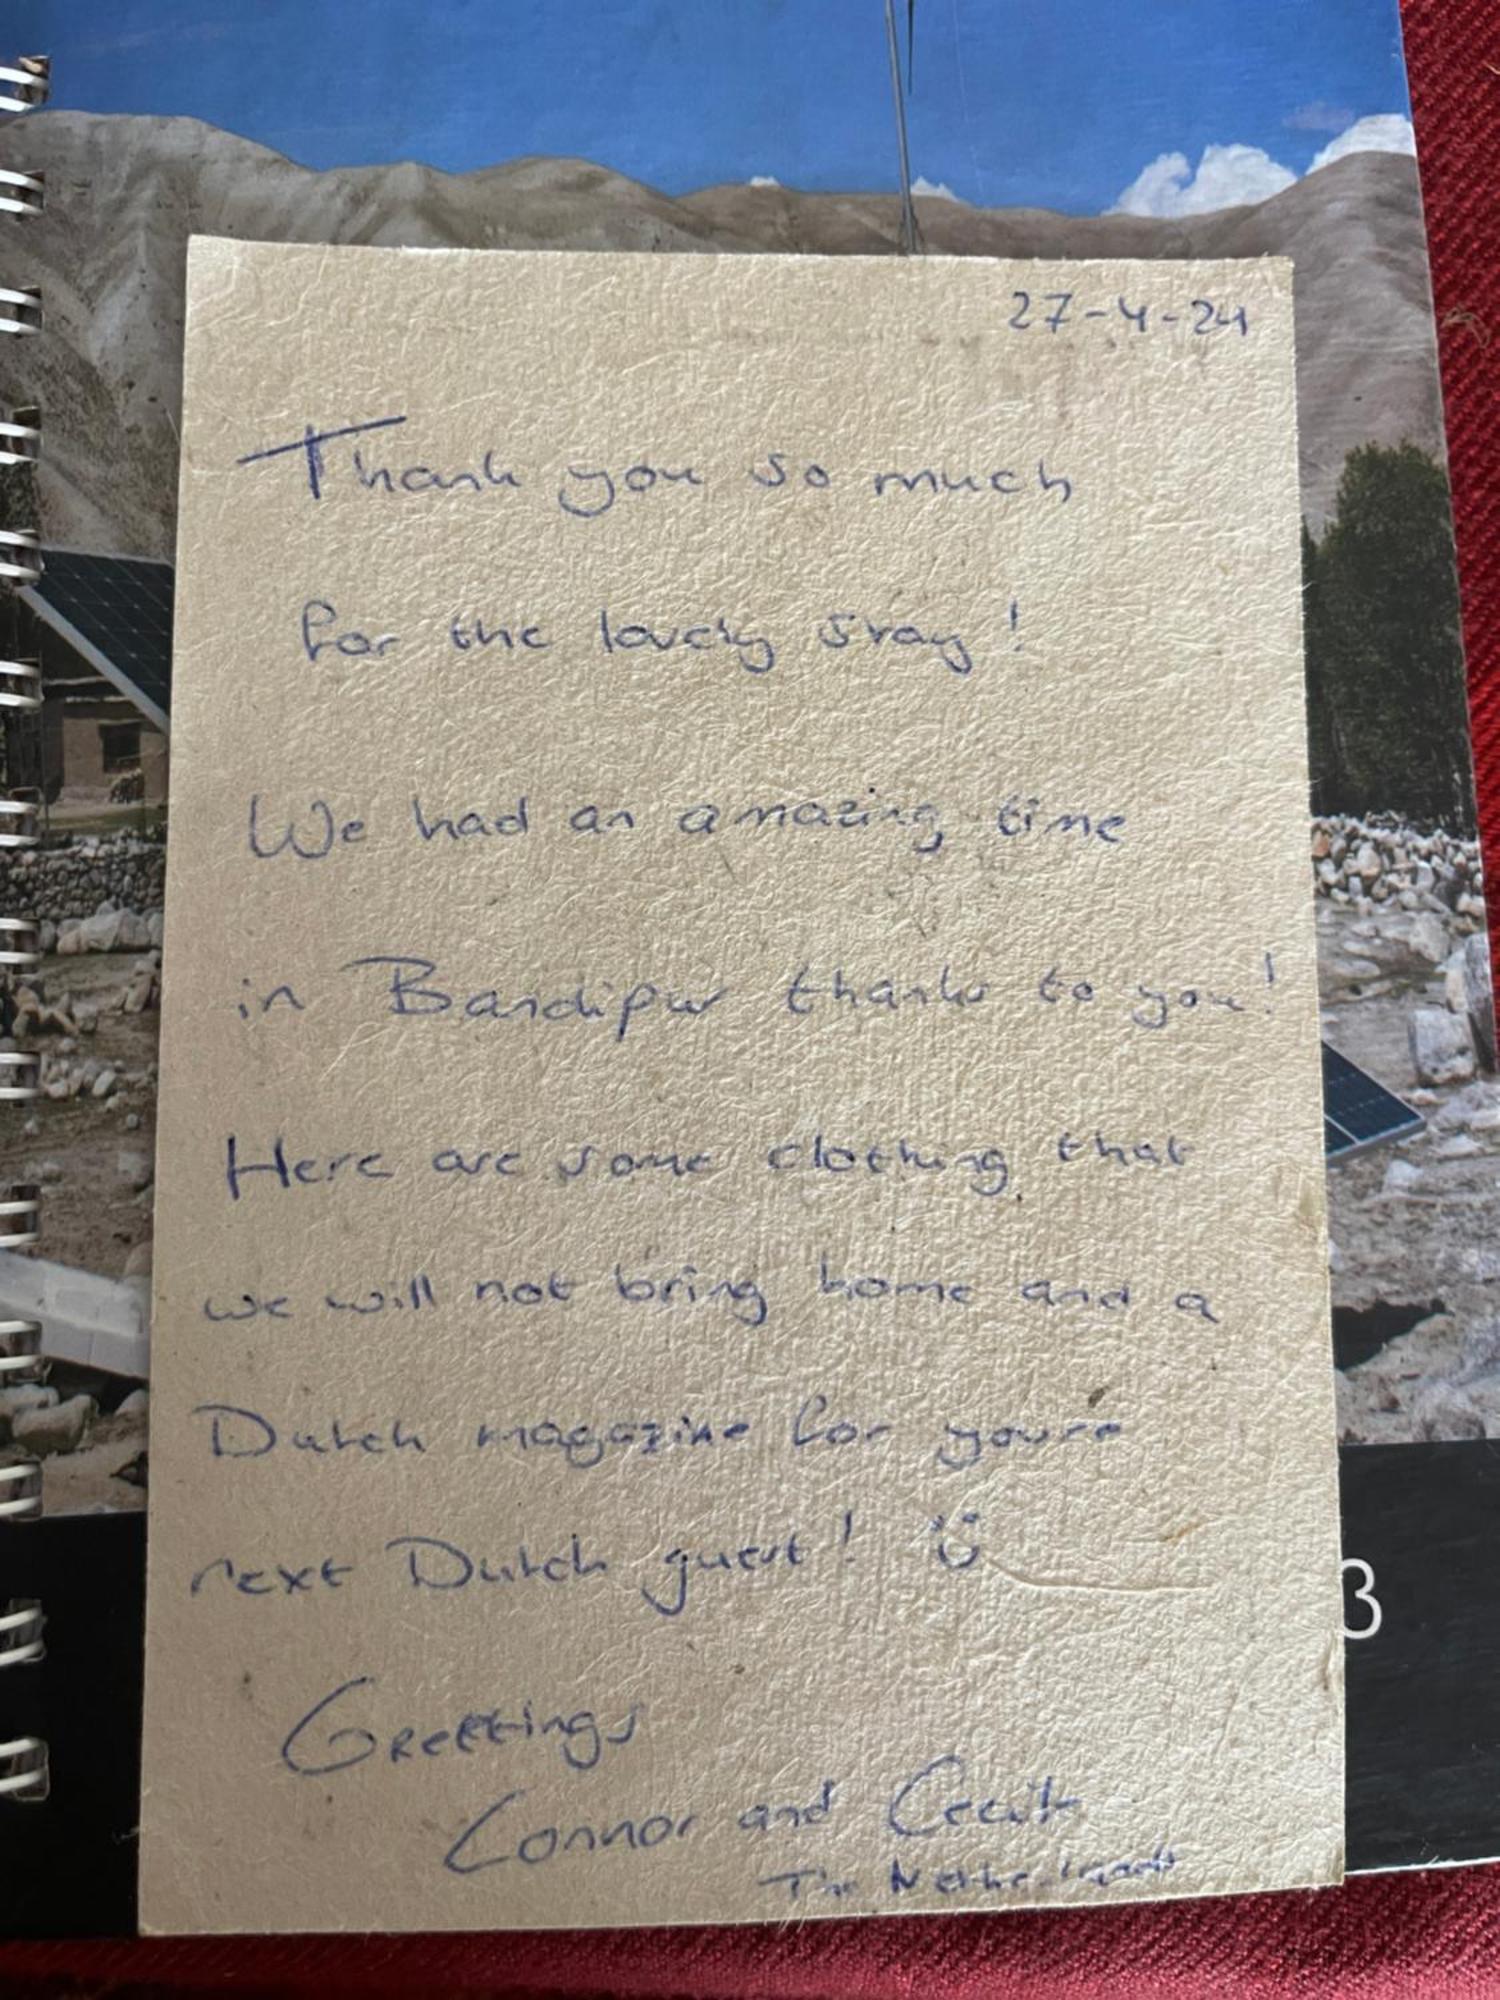 27-4-24
Thank you so much
for the lovely stay!
We had an amazing time
in Bandipur thanks to you!
Here are some clothing that
we will not bring home and a
Dutch magazine for youre
next Dutch guest! :)
Greetings
Connor and
The Netherlands
3